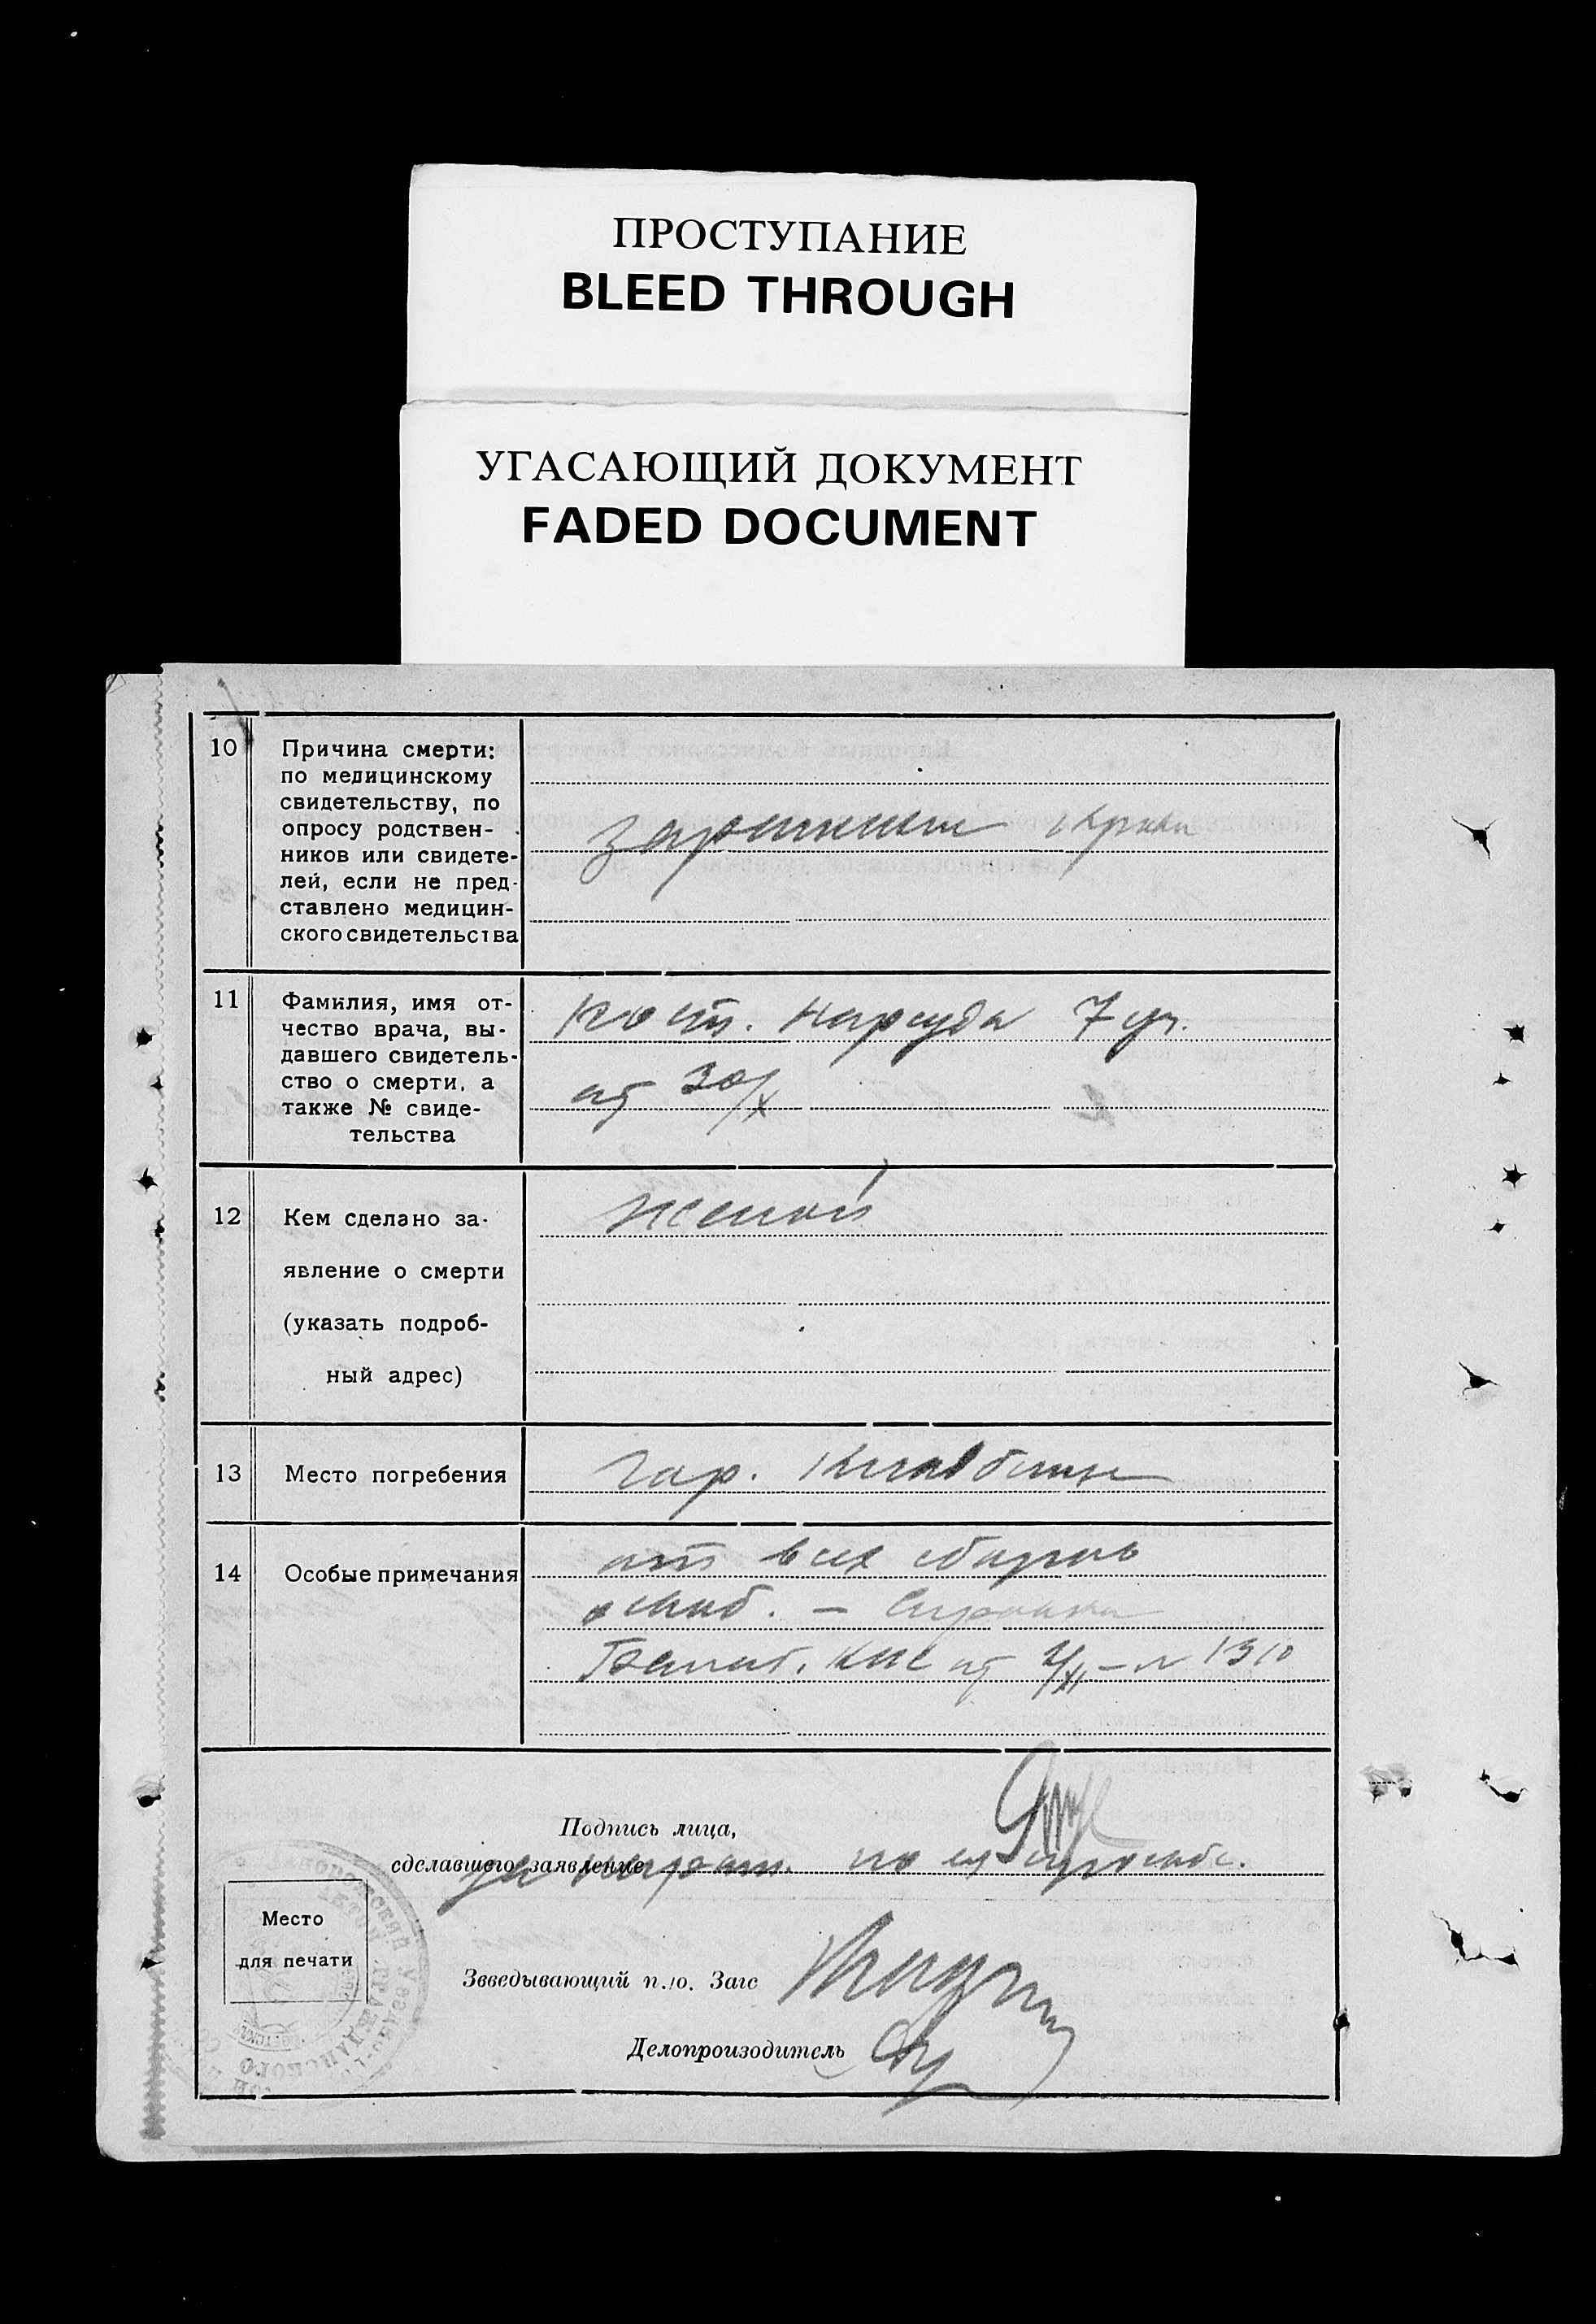 ПРОСТУПАНИЕ
BLEED THROUGH
УГАСАЮЩИЙ ДОКУМЕНТ
FADED DOCUMENT
10 Причина смерти:
по медицинскому
свидетельству, по
опросу родствен-
ников или свидете-
лей, если не пред-
ставлено медицин-
ского свидетельства
заражение крови
11 Фамилия, имя от-
чество врача, вы-
давшего свидетель-
ство о смерти, а
также № свиде-
тельства
нарсуда 7 уч.
от 30/X
12 Кем сделано за-
явление о смерти
(указать подроб-
ный адрес)
женой
13 Место погребения
гор. кладбище
14 Особые примечания
от всех сборов
освоб. – Справка
КНС от 2/XI – № 1310
Подпись лица,
сделавшего заявление
за неграм. по ее просьбе.
Место
для печати
Зведывающий п.\ю. Загс
Делопроизводитель